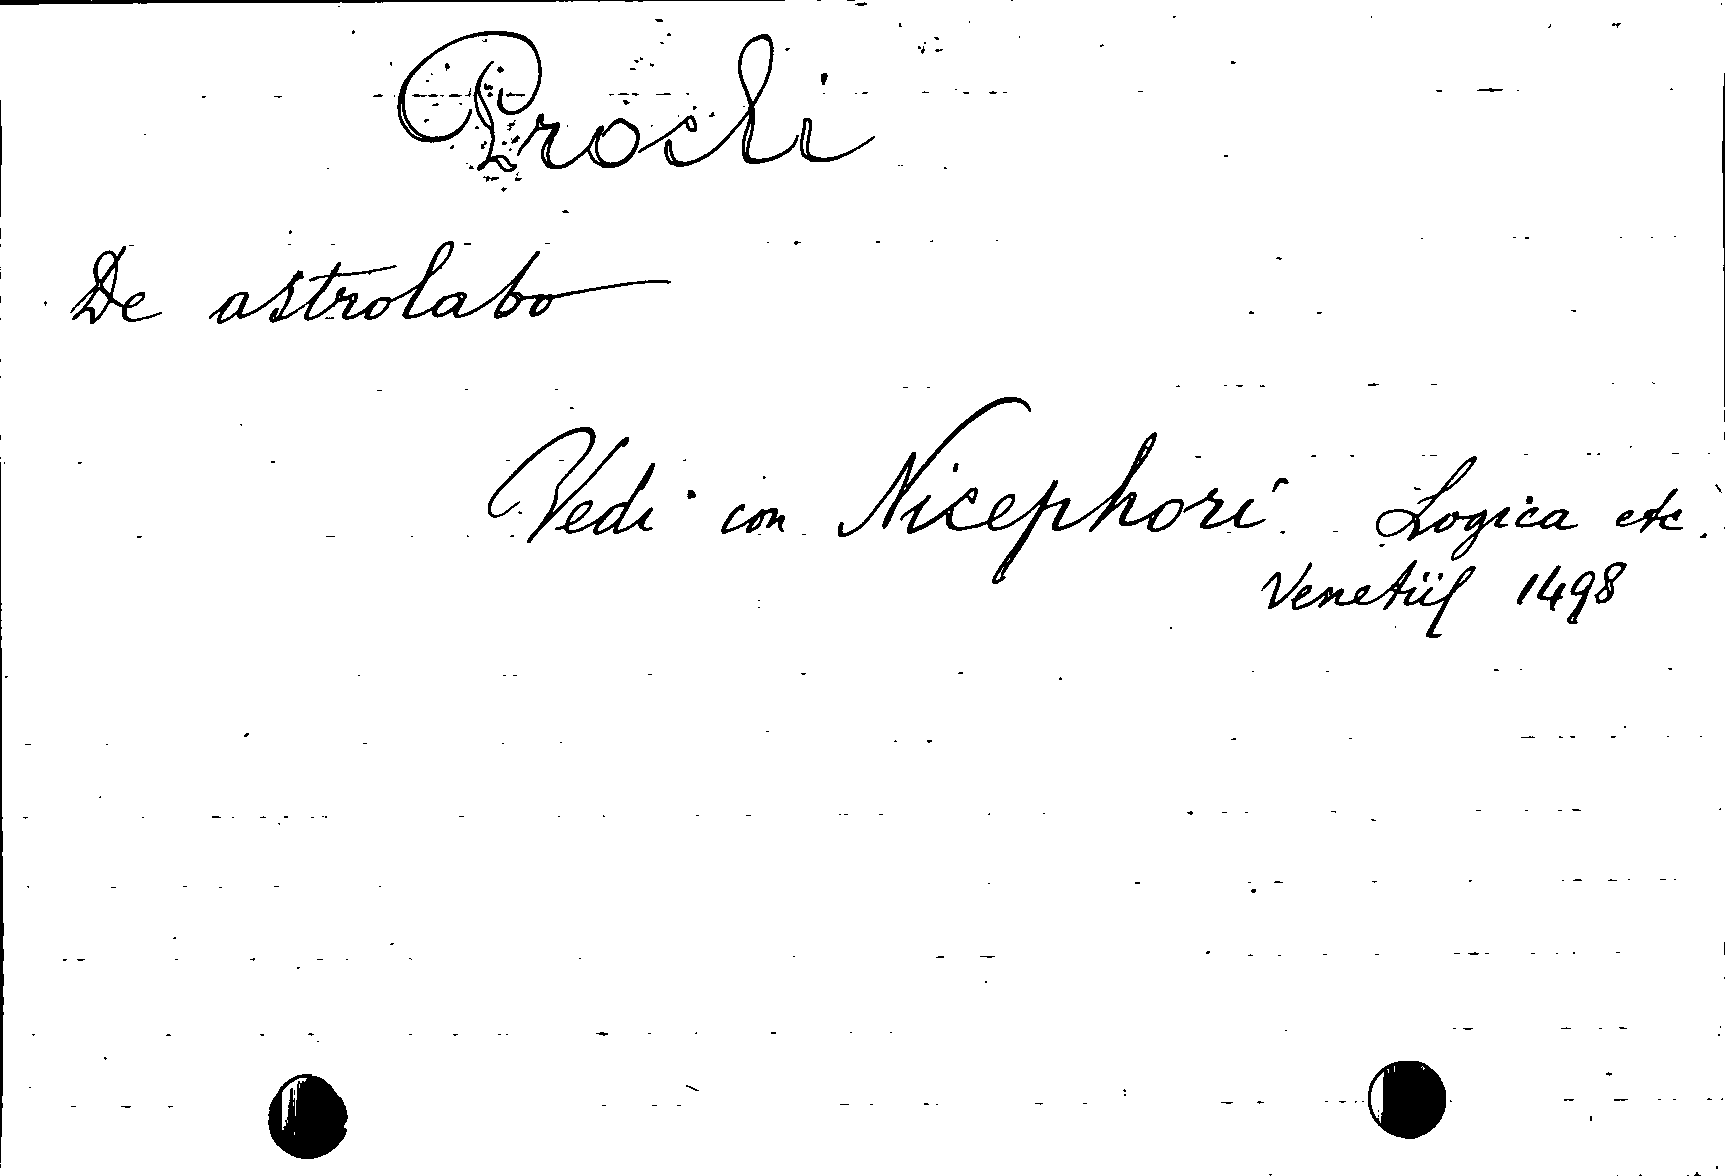 Procli
De astrolabo
Vedi con Nicephori Logica etc.
Venetiis 1498